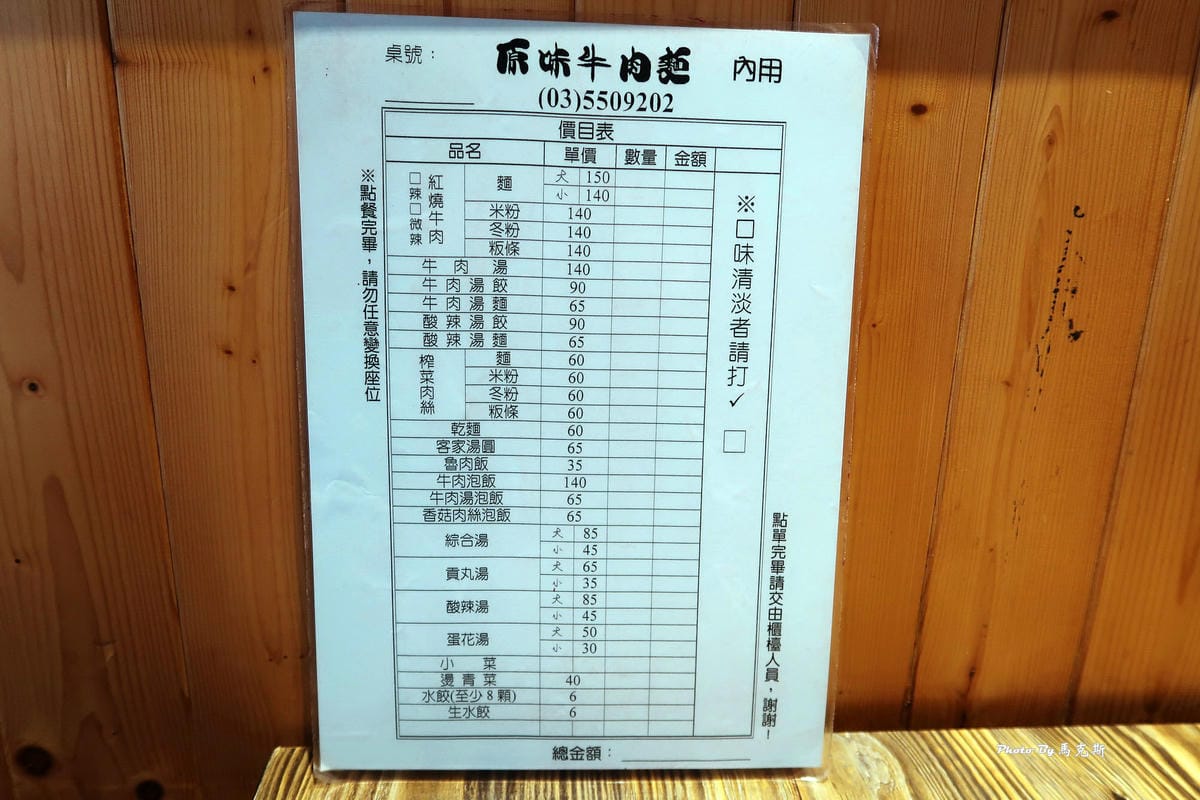 桌號：
原味牛肉麵
內用
(03)5509202
價目表
品名 單價 數量 金額
紅燒牛肉
□辣□微辣
麵 大 150
小 140
米粉 140
冬粉 140
粄條 140
牛肉湯 140
牛肉湯餃 90
牛肉湯麵 65
酸辣湯餃 90
酸辣湯麵 65
榨菜肉絲
麵 60
米粉 60
冬粉 60
粄條 60
乾麵 60
客家湯圓 65
魯肉飯 35
牛肉泡飯 140
牛肉湯泡飯 65
香菇肉絲泡飯 65
綜合湯 大 85
小 45
貢丸湯 大 65
小 35
酸辣湯 大 85
小 45
蛋花湯 大 50
小 30
小菜
燙青菜 40
水餃(至少8顆) 6
生水餃 6
總金額：
※點餐完畢，請勿任意變換座位
※口味清淡者請打✓
□
點單完畢請交由櫃檯人員，謝謝！
Photo By 馬克斯